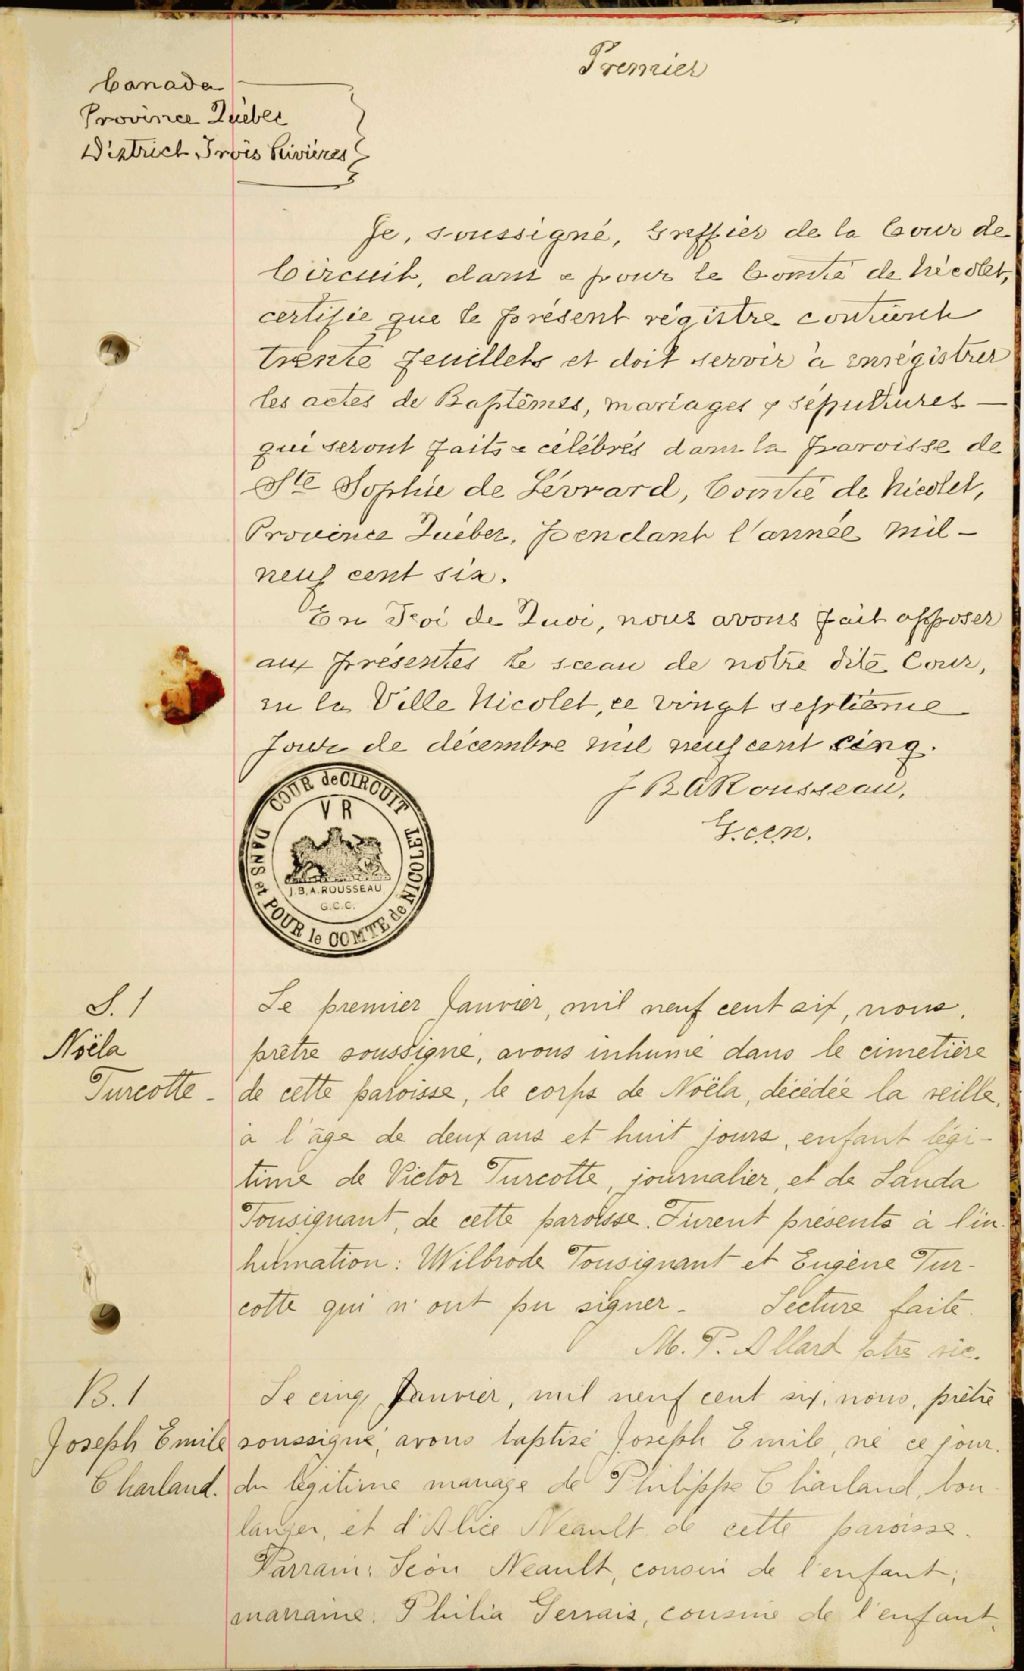 Premier
Canada
Province Québec
District Trois Rivières
Je, soussigné, Greffier de la Cour de
Circuit, dans & pour le Comté de Nicolet,
certifie que le présent régistre contient
trente feuillets et doit servir à enrégistrer
les actes de Baptêmes, mariages & sépultures —
qui seront faits & célébrés dans la paroisse de
Ste Sophie de Lévrard, Comté de Nicolet,
Province Québec, pendant l'année mil-
neuf cent six.
En Foi de Quoi, nous avons fait apposer
aux présentes le sceau de notre dite Cour,
en la Ville Nicolet, ce vingt septième
jour de décembre mil neuf cent cinq.
J B A Rousseau,
G.c.c.n.
COUR de CIRCUIT
DANS et POUR le COMTE de NICOLET
V R
J. B. A. ROUSSEAU
G.C.C.
S. 1
Noëla
Turcotte -
Le premier Janvier, mil neuf cent six, nous,
prêtre soussigné, avons inhumé dans le cimetière
de cette paroisse, le corps de Noëla, décédée la veille,
à l'âge de deux ans et huit jours, enfant légi-
time de Victor Turcotte, journalier, et de Landa
Tousignant, de cette paroisse. Furent présents à l'in-
humation: Wilbrode Tousignant et Eugène Tur-
cotte qui n'ont pu signer - Lecture faite.
M. P. Allard Ptre vic.
B. 1
Joseph Emile
Charland.
Le cinq Janvier, mil neuf cent six, nous, prêtre
soussigné, avons baptisé Joseph Emile, né ce jour,
du légitime mariage de Philippe Charland, bou-
langer, et d'Alice Neault de cette paroisse.
Parrain: Léon Neault, cousin de l'enfant;
marraine: Philia Gervais, cousine de l'enfant,